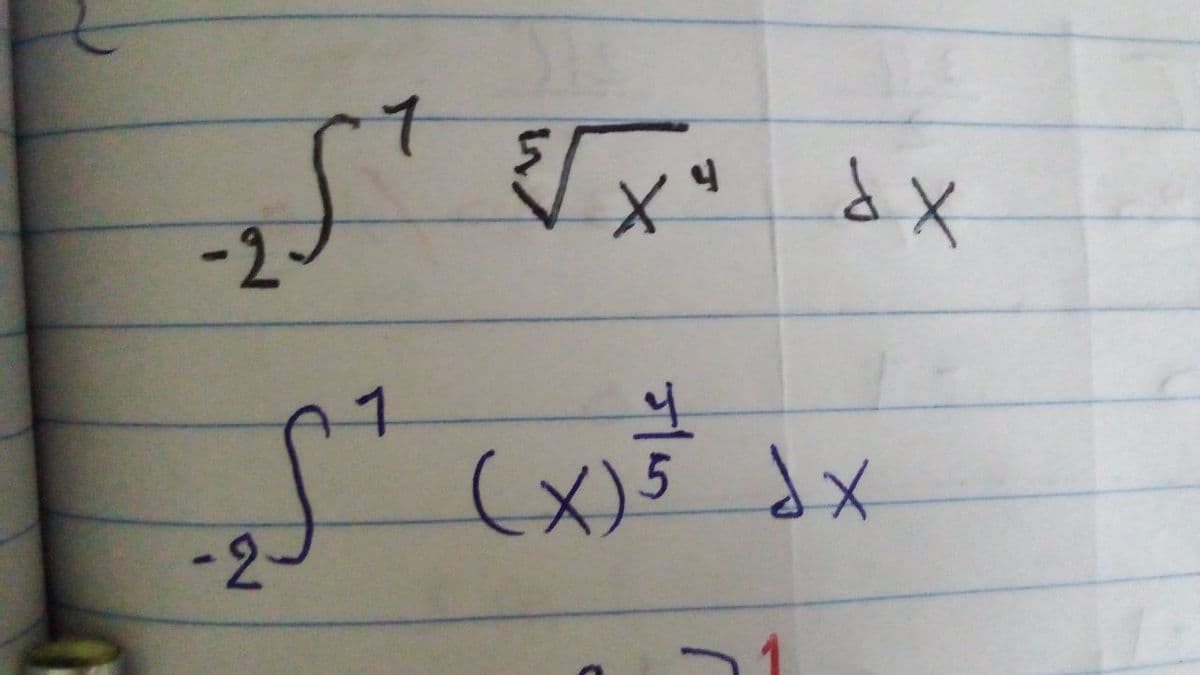 -2∫1 5√x4 dx
-2∫1 (x)4/5 dx
1